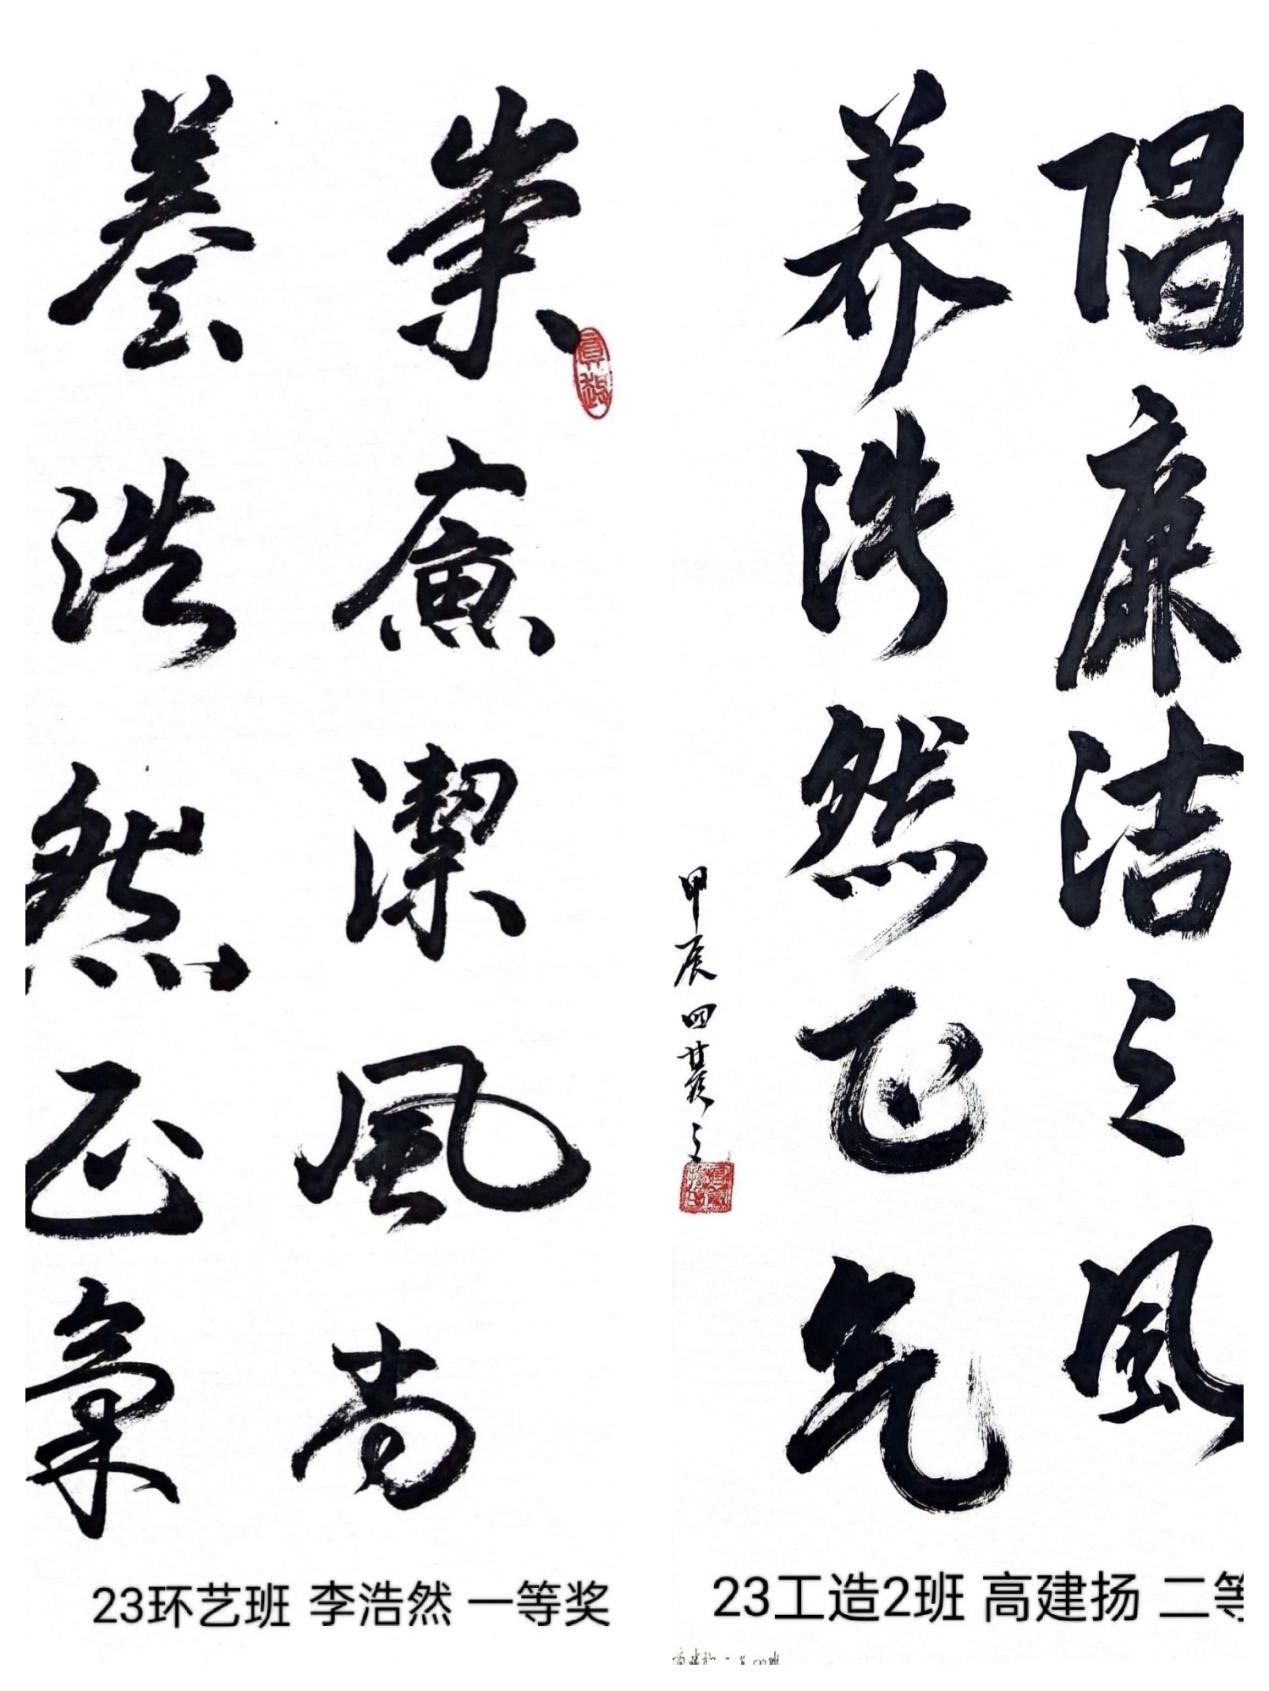 崇廉潔風尚
養浩然正氣
23环艺班 李浩然 一等奖
倡廉洁之風
养浩然正气
甲辰四
23工造2班 高建扬 二等